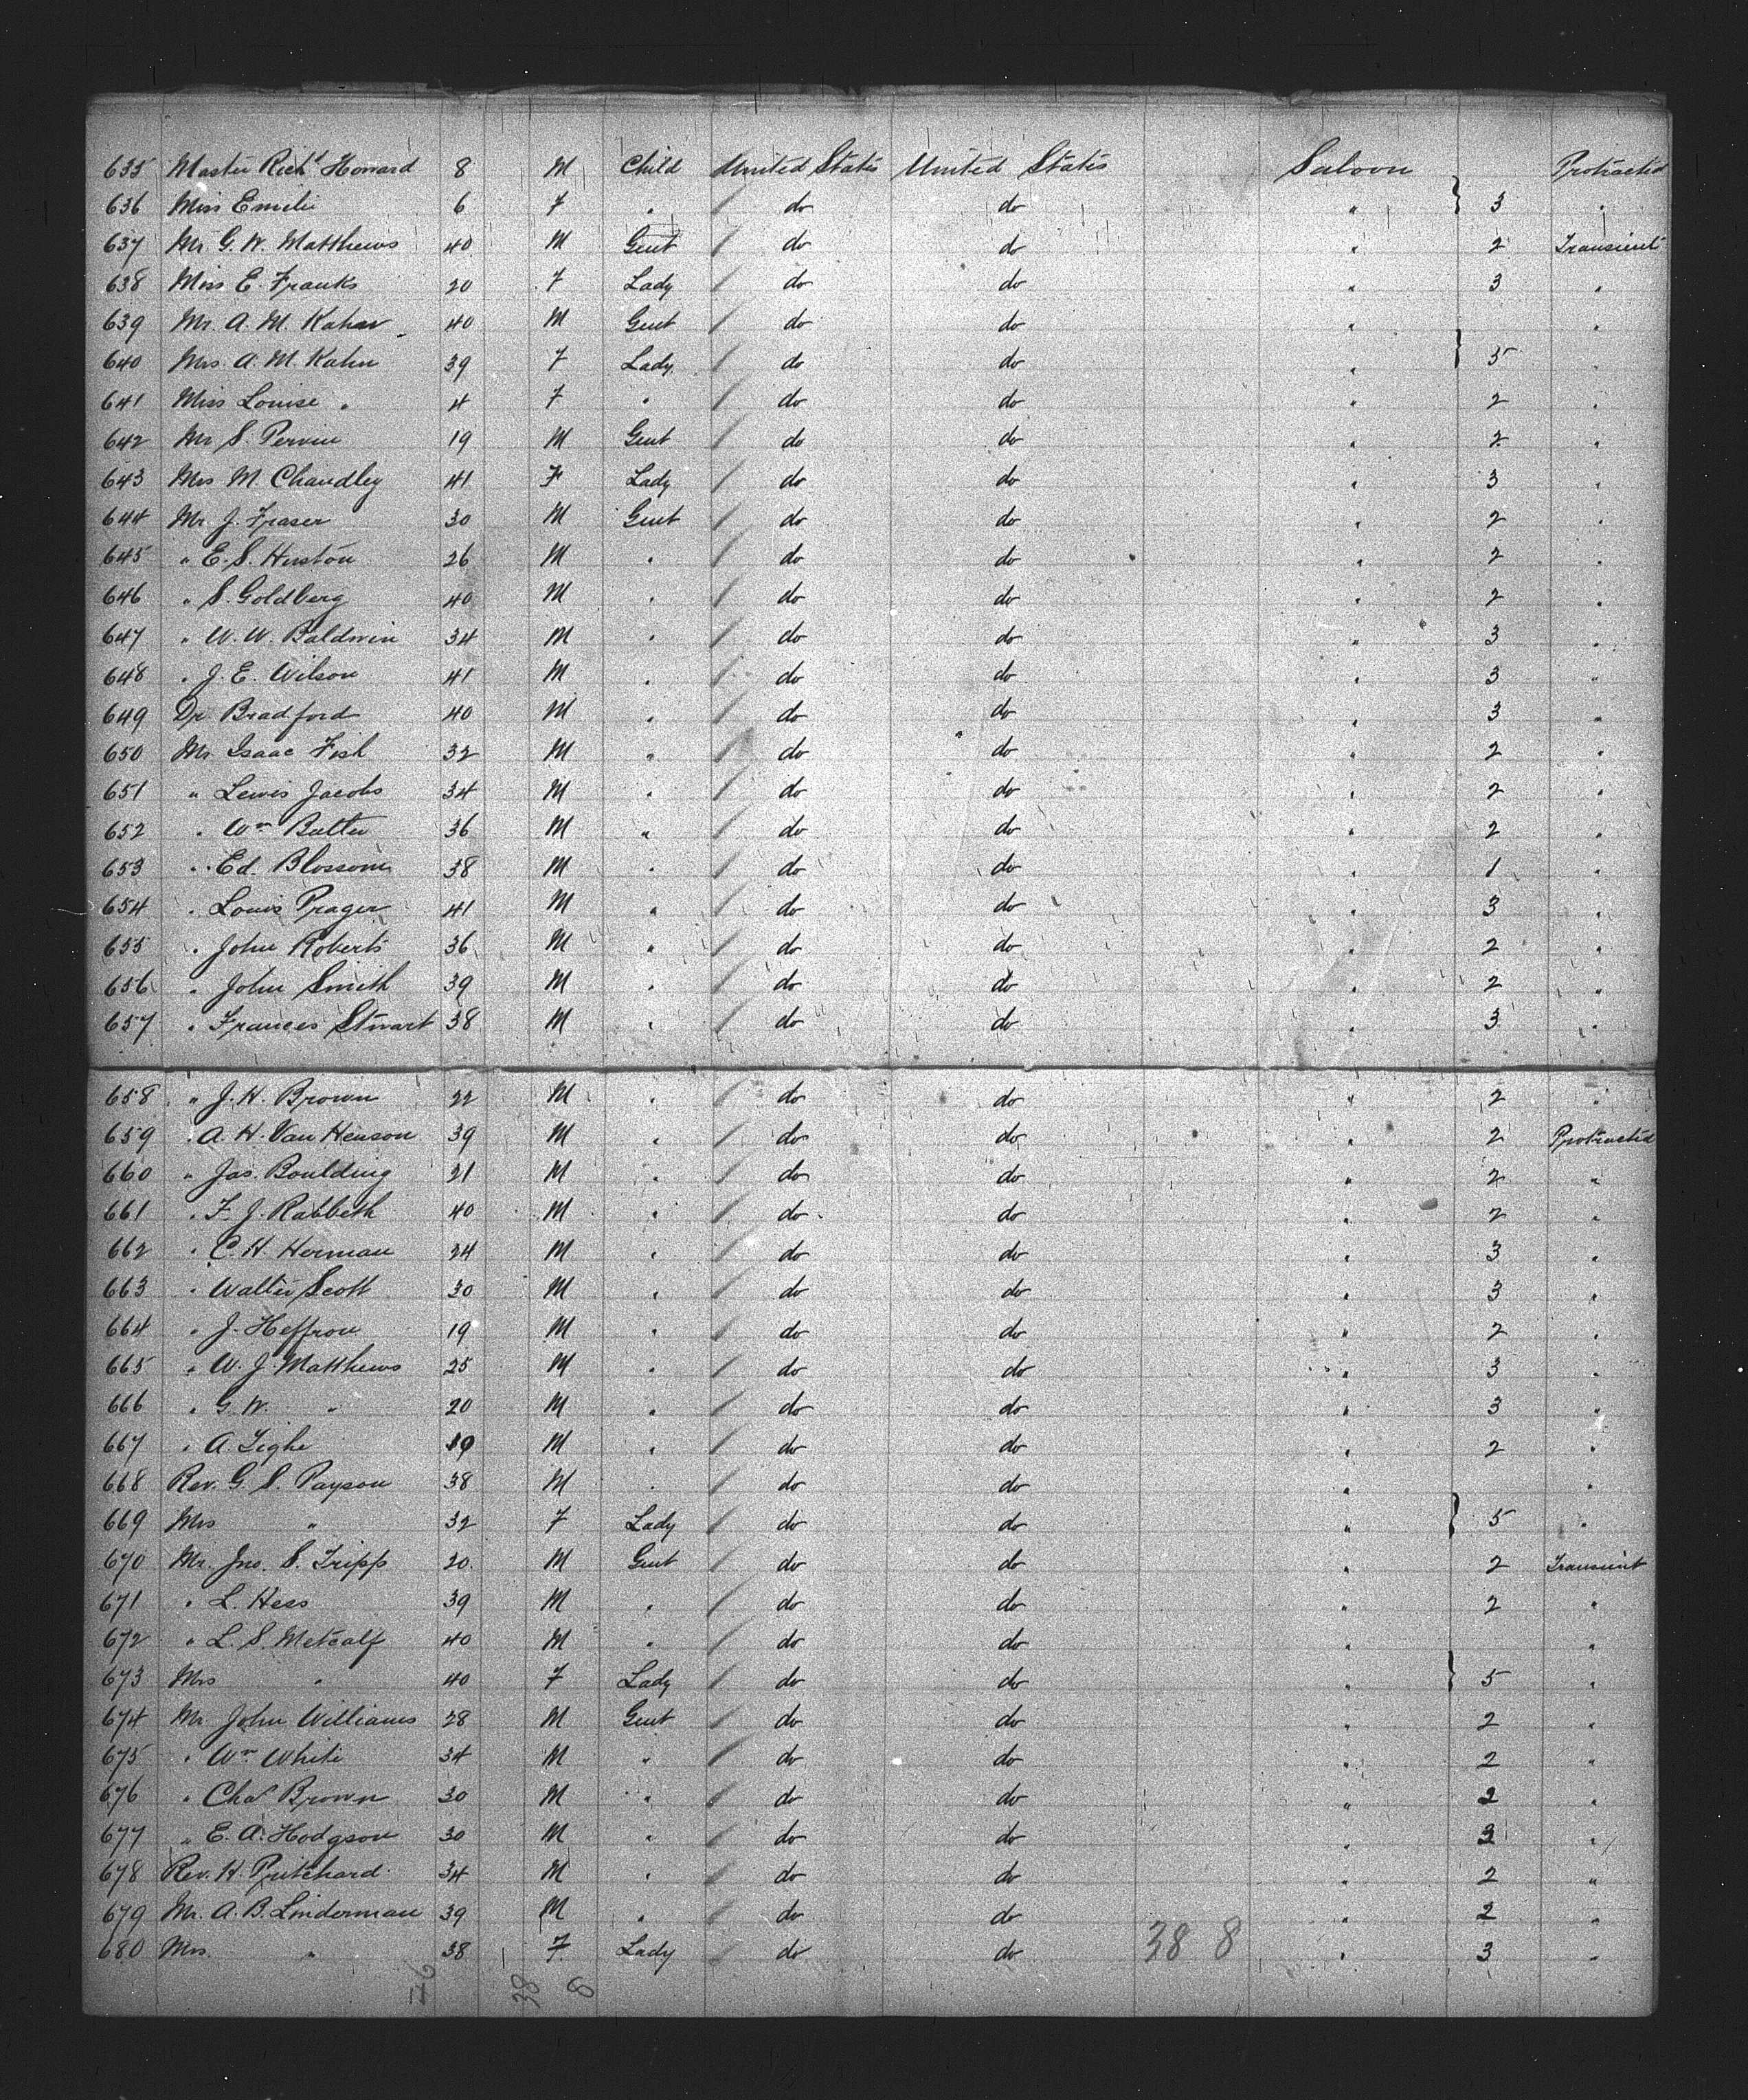 635 Master Richd Howard 8 M Child United States United States Saloon Protracted
636 Miss Emilie 6 F " do do " } 3 "
637 Mr G. W. Matthews 40 M Gent do do " 2 Transient
638 Miss E. Franks 20 F Lady do do " 3 "
639 Mr. A. M. Kahn 40 M Gent do do " "
640 Mrs. A. M. Kahn 39 F Lady do do " } 5 "
641 Miss Louise " 4 F " do do " 2 "
642 Mr S. Pervin 19 M Gent do do " 2 "
643 Mrs M. Chandley 41 F Lady do do " 3 "
644 Mr. J. Fraser 30 M Gent do do " 2 "
645 " E. S. Huston 26 M " do do " 2 "
646 " S. Goldberg 40 M " do do " 2 "
647 " W. W. Baldwin 34 M " do do " 3 "
648 " J. E. Wilson 41 M " do do " 3 "
649 Dr. Bradford 40 M " do do " 3 "
650 Mr. Isaac Fish 32 M " do do " 2 "
651 " Lewis Jacobs 34 M " do do " 2 "
652 " Wm Butler 36 M " do do " 2 "
653 " Ed. Blossom 38 M " do do " 1 "
654 " Louis Prager 41 M " do do " 3 "
655 " John Roberts 36 M " do do " 2 "
656 " John Smith 39 M " do do " 2 "
657 " Frances Stuart 38 M " do do " 3 "
658 " J. H. Brown 22 M " do do " 2 "
659 " A. H. Van Henson 39 M " do do " 2 Protracted
660 " Jas. Boulding 21 M " do do " 2 "
661 " F. J. Rabbeth 40 M " do do " 2 "
662 " C. H. Herman 24 M " do do " 3 "
663 " Walter Scott 30 M " do do " 3 "
664 " J. Heffron 19 M " do do " 2 "
665 " W. J. Matthews 25 M " do do " 3 "
666 " G. W. " 20 M " do do " 3 "
667 " A. Tighe 19 M " do do " 2 "
668 Rev. G. S. Payson 38 M " do do " "
669 Mrs " 32 F Lady do do " } 5 "
670 Mr. Jno. S. Tripp 20 M Gent do do " 2 Transient
671 " L. Hess 39 M " do do " 2 "
672 " L. S. Metcalf 40 M " do do " "
673 Mrs " 40 F Lady do do " } 5 "
674 Mr. John Williams 28 M Gent do do " 2 "
675 " Wm White 34 M " do do " 2 "
676 " Chas Brown 30 M " do do " 2 "
677 " E. A. Hodgson 30 M " do do " 3 "
678 Rev. H. Pritchard 34 M " do do " 2 "
679 Mr. A. B. Linderman 39 M " do do " 2 "
680 Mrs. " 38 F Lady do do 38 8 " 3 "
46 38 8